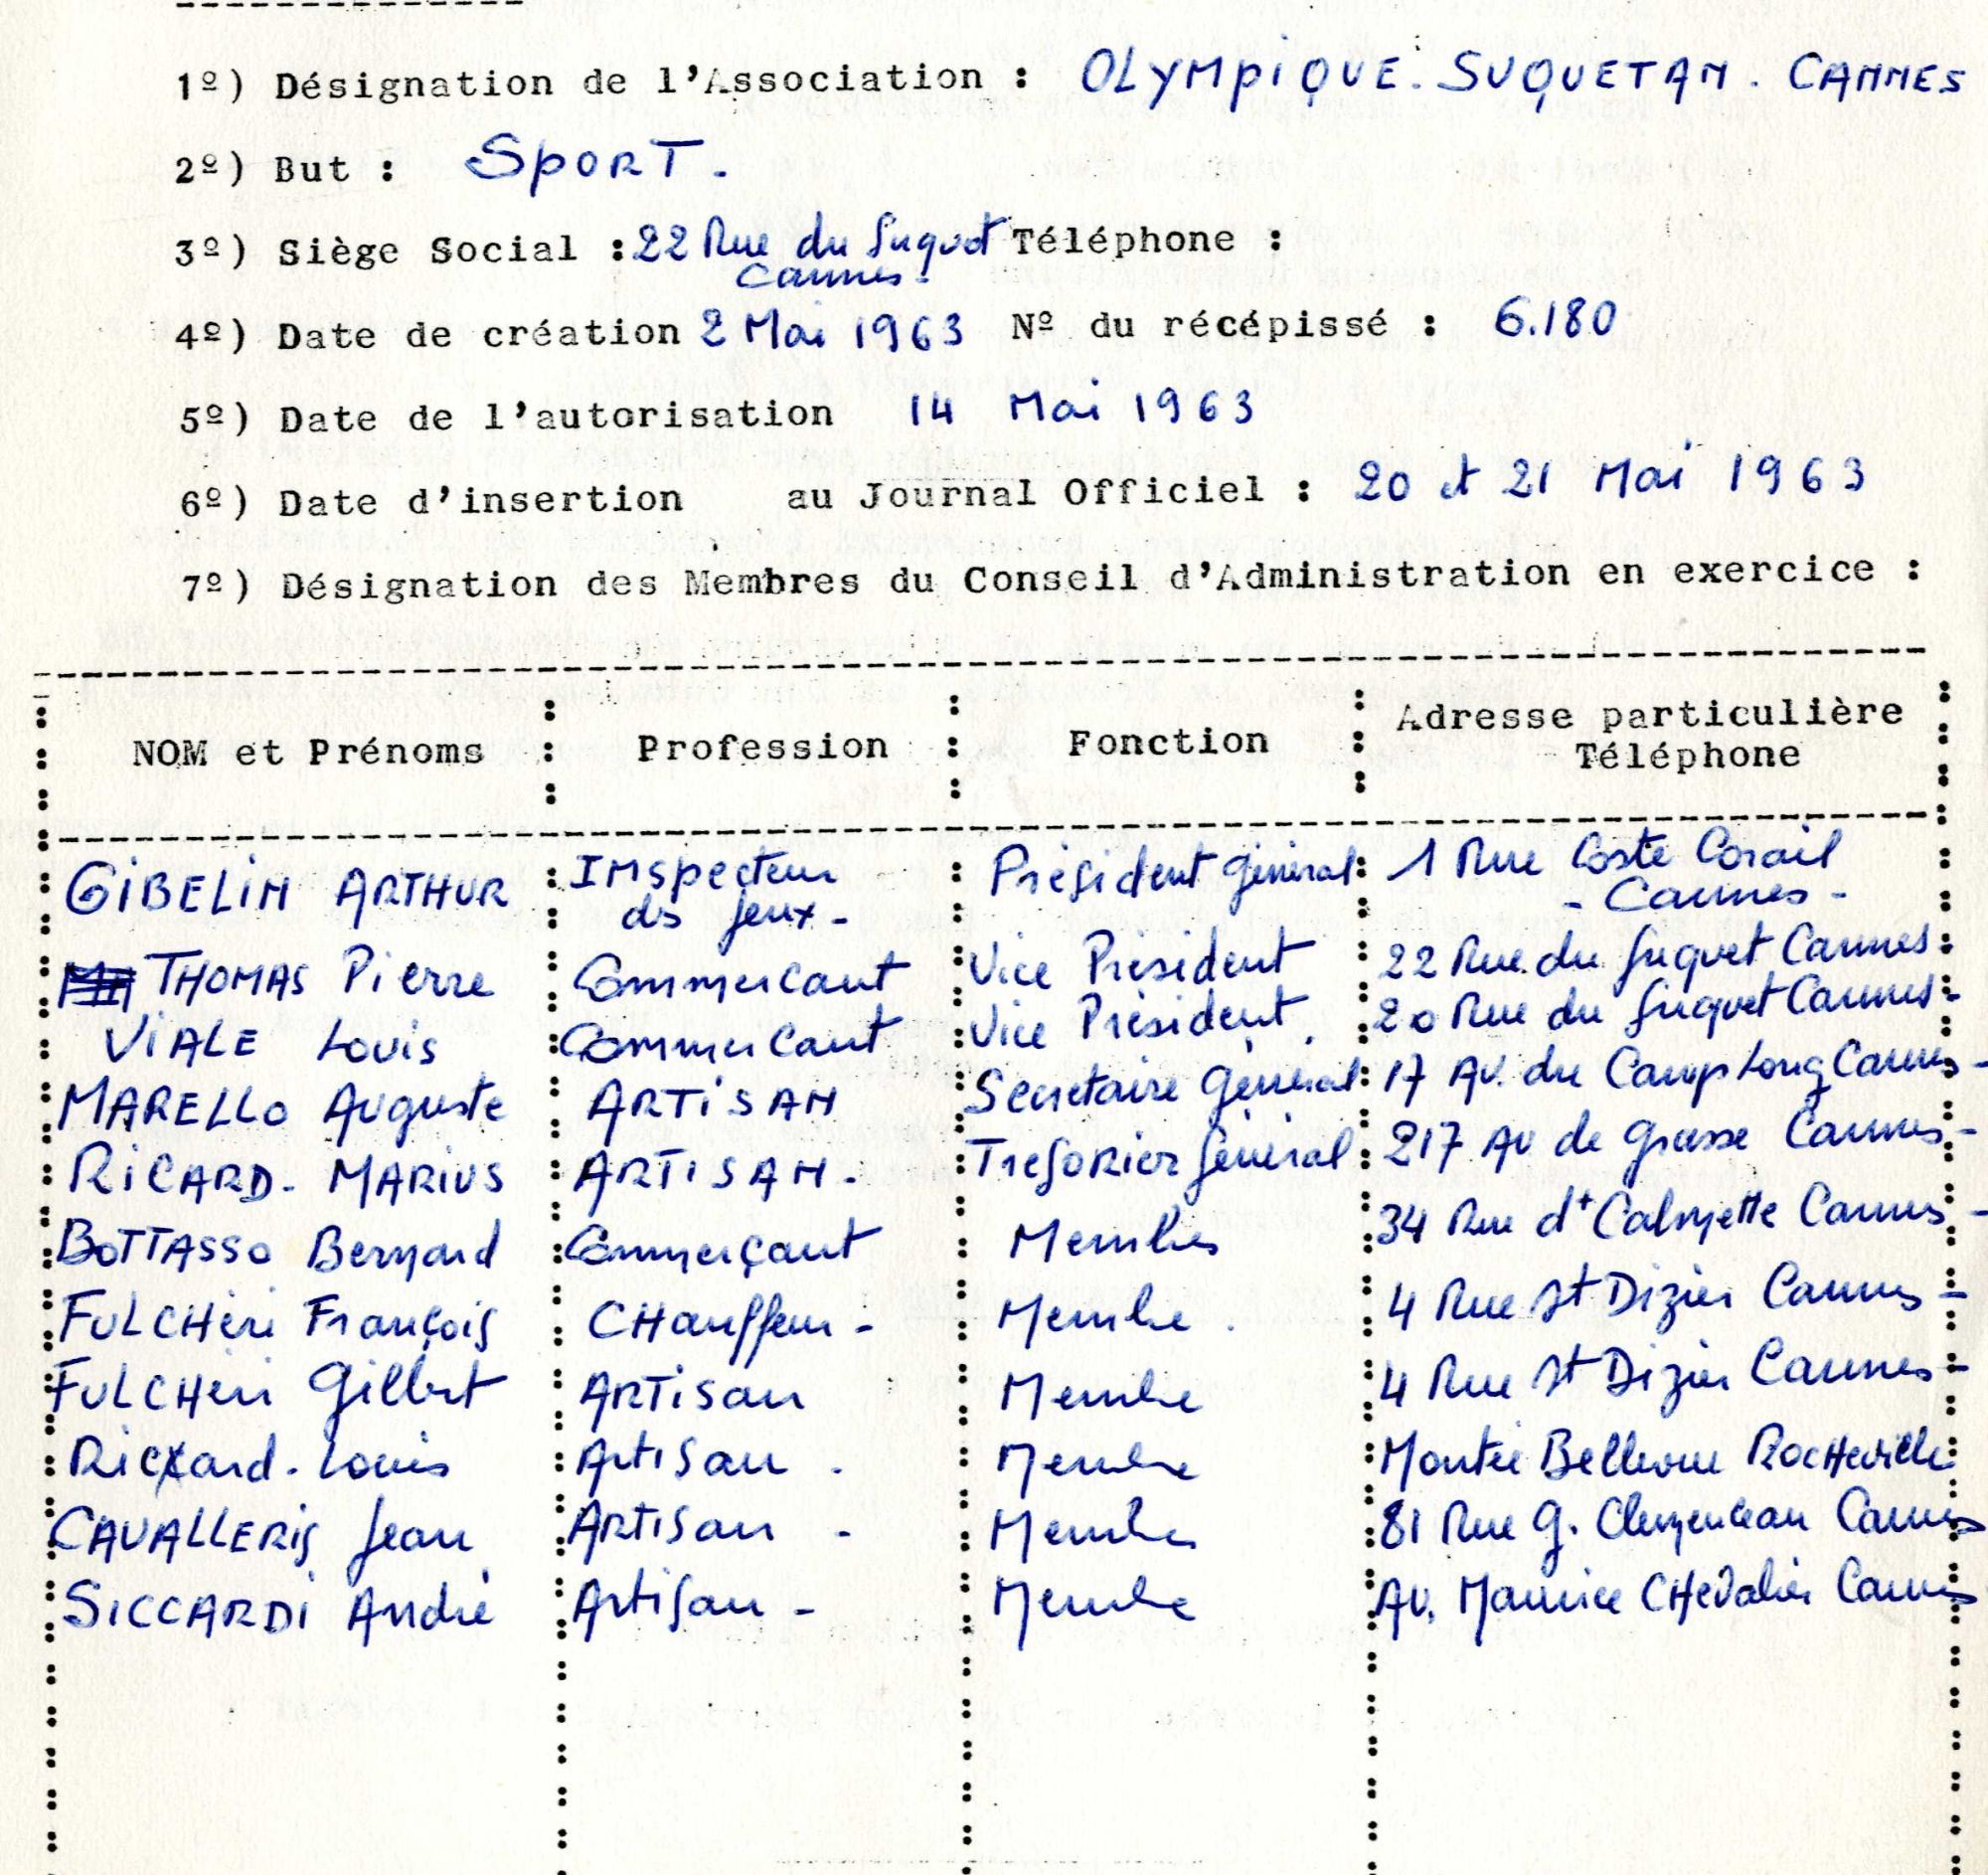 1º) Désignation de l'Association : OLYMPIQUE. SUQUETAN. CANNES
2º) But : SPORT.
3º) Siège Social : 22 Rue du Suquet Téléphone :
Cannes.
4º) Date de création 2 Mai 1963 Nº du récépissé : 6.180
5º) Date de l'autorisation 14 Mai 1963
6º) Date d'insertion au Journal Officiel : 20 et 21 Mai 1963
7º) Désignation des Membres du Conseil d'Administration en exercice :
NOM et Prénoms : Profession : Fonction : Adresse particulière
Téléphone
GIBELIN ARTHUR : Inspecteur : Président Général : 1 Rue Coste Corail
ds Jeux - - Cannes -
THOMAS Pierre : Commercant : Vice Président : 22 Rue du Suquet Cannes
VIALE Louis : Commercant : Vice Président. : 20 Rue du Suquet Cannes -
MARELLO Auguste : ARTISAN : Secretaire Général : 17 Av. du Camp Long Cannes -
RICARD. MARIUS : ARTISAN. : Tresorier Général : 217 Av de Grasse Cannes -
BOTTASSO Bernard : Commerçant : Membre : 34 Rue dt Calmette Cannes -
FULCHERI François : CHauffeur - : Membre. : 4 Rue St Dizier Cannes -
FULCHERI Gilbert : ARTisan : Membre : 4 Rue St Dizier Cannes -
Ricard. Louis : Artisan. : Membre : Montée Bellevue Rocheville
CAVALLERIS Jean : ARTISan - : Membre : 81 Rue G. Clemenceau Cannes
SICCARDI André : Artisan - : Membre : Av. Maurice CHEvalier Cannes